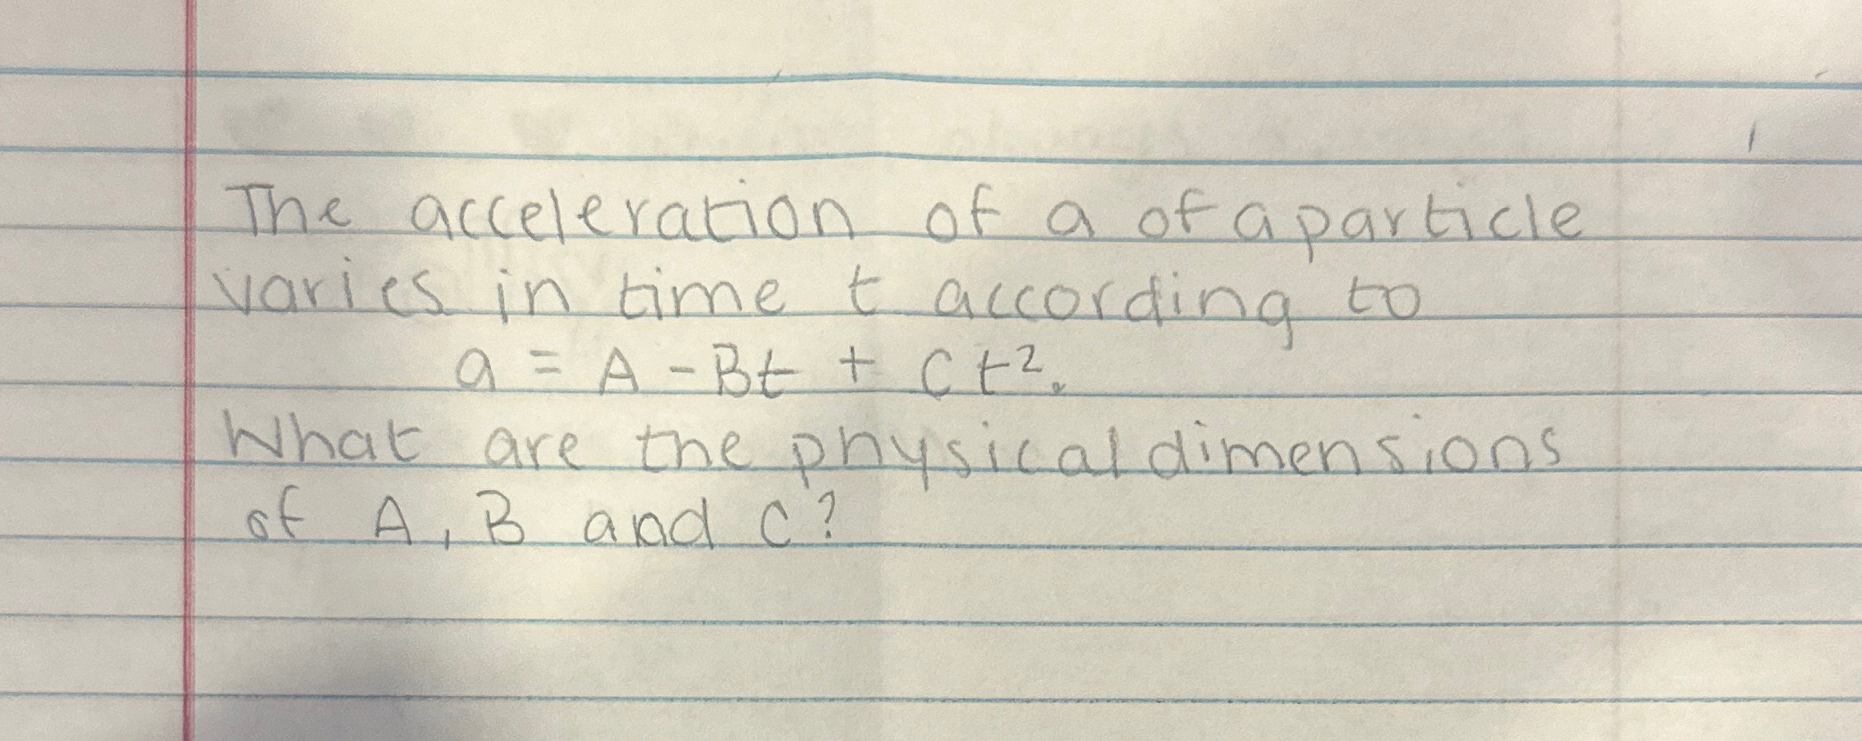 The acceleration of a of a particle
varies in time t according to
a = A - Bt + Ct².
What are the physical dimensions
of A, B and C?